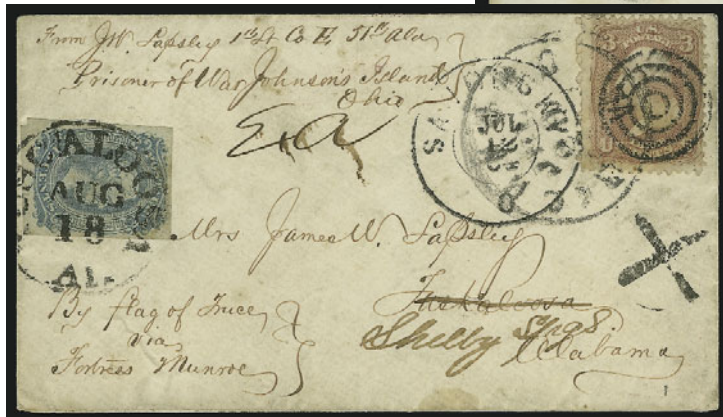 From J.W. Lapsley 1st Lt Co E, 51st Ala
Prisoner of War Johnson's Island
Ohio
Ex
3 3
SANDUSKY
JUL
TUSCALOOSA
AUG
18
AL.
Mrs James W. Lapsley
Tuskaloosa
Shelby Spgs.
Alabama
By flag of Truce
via
Fortress Munroe